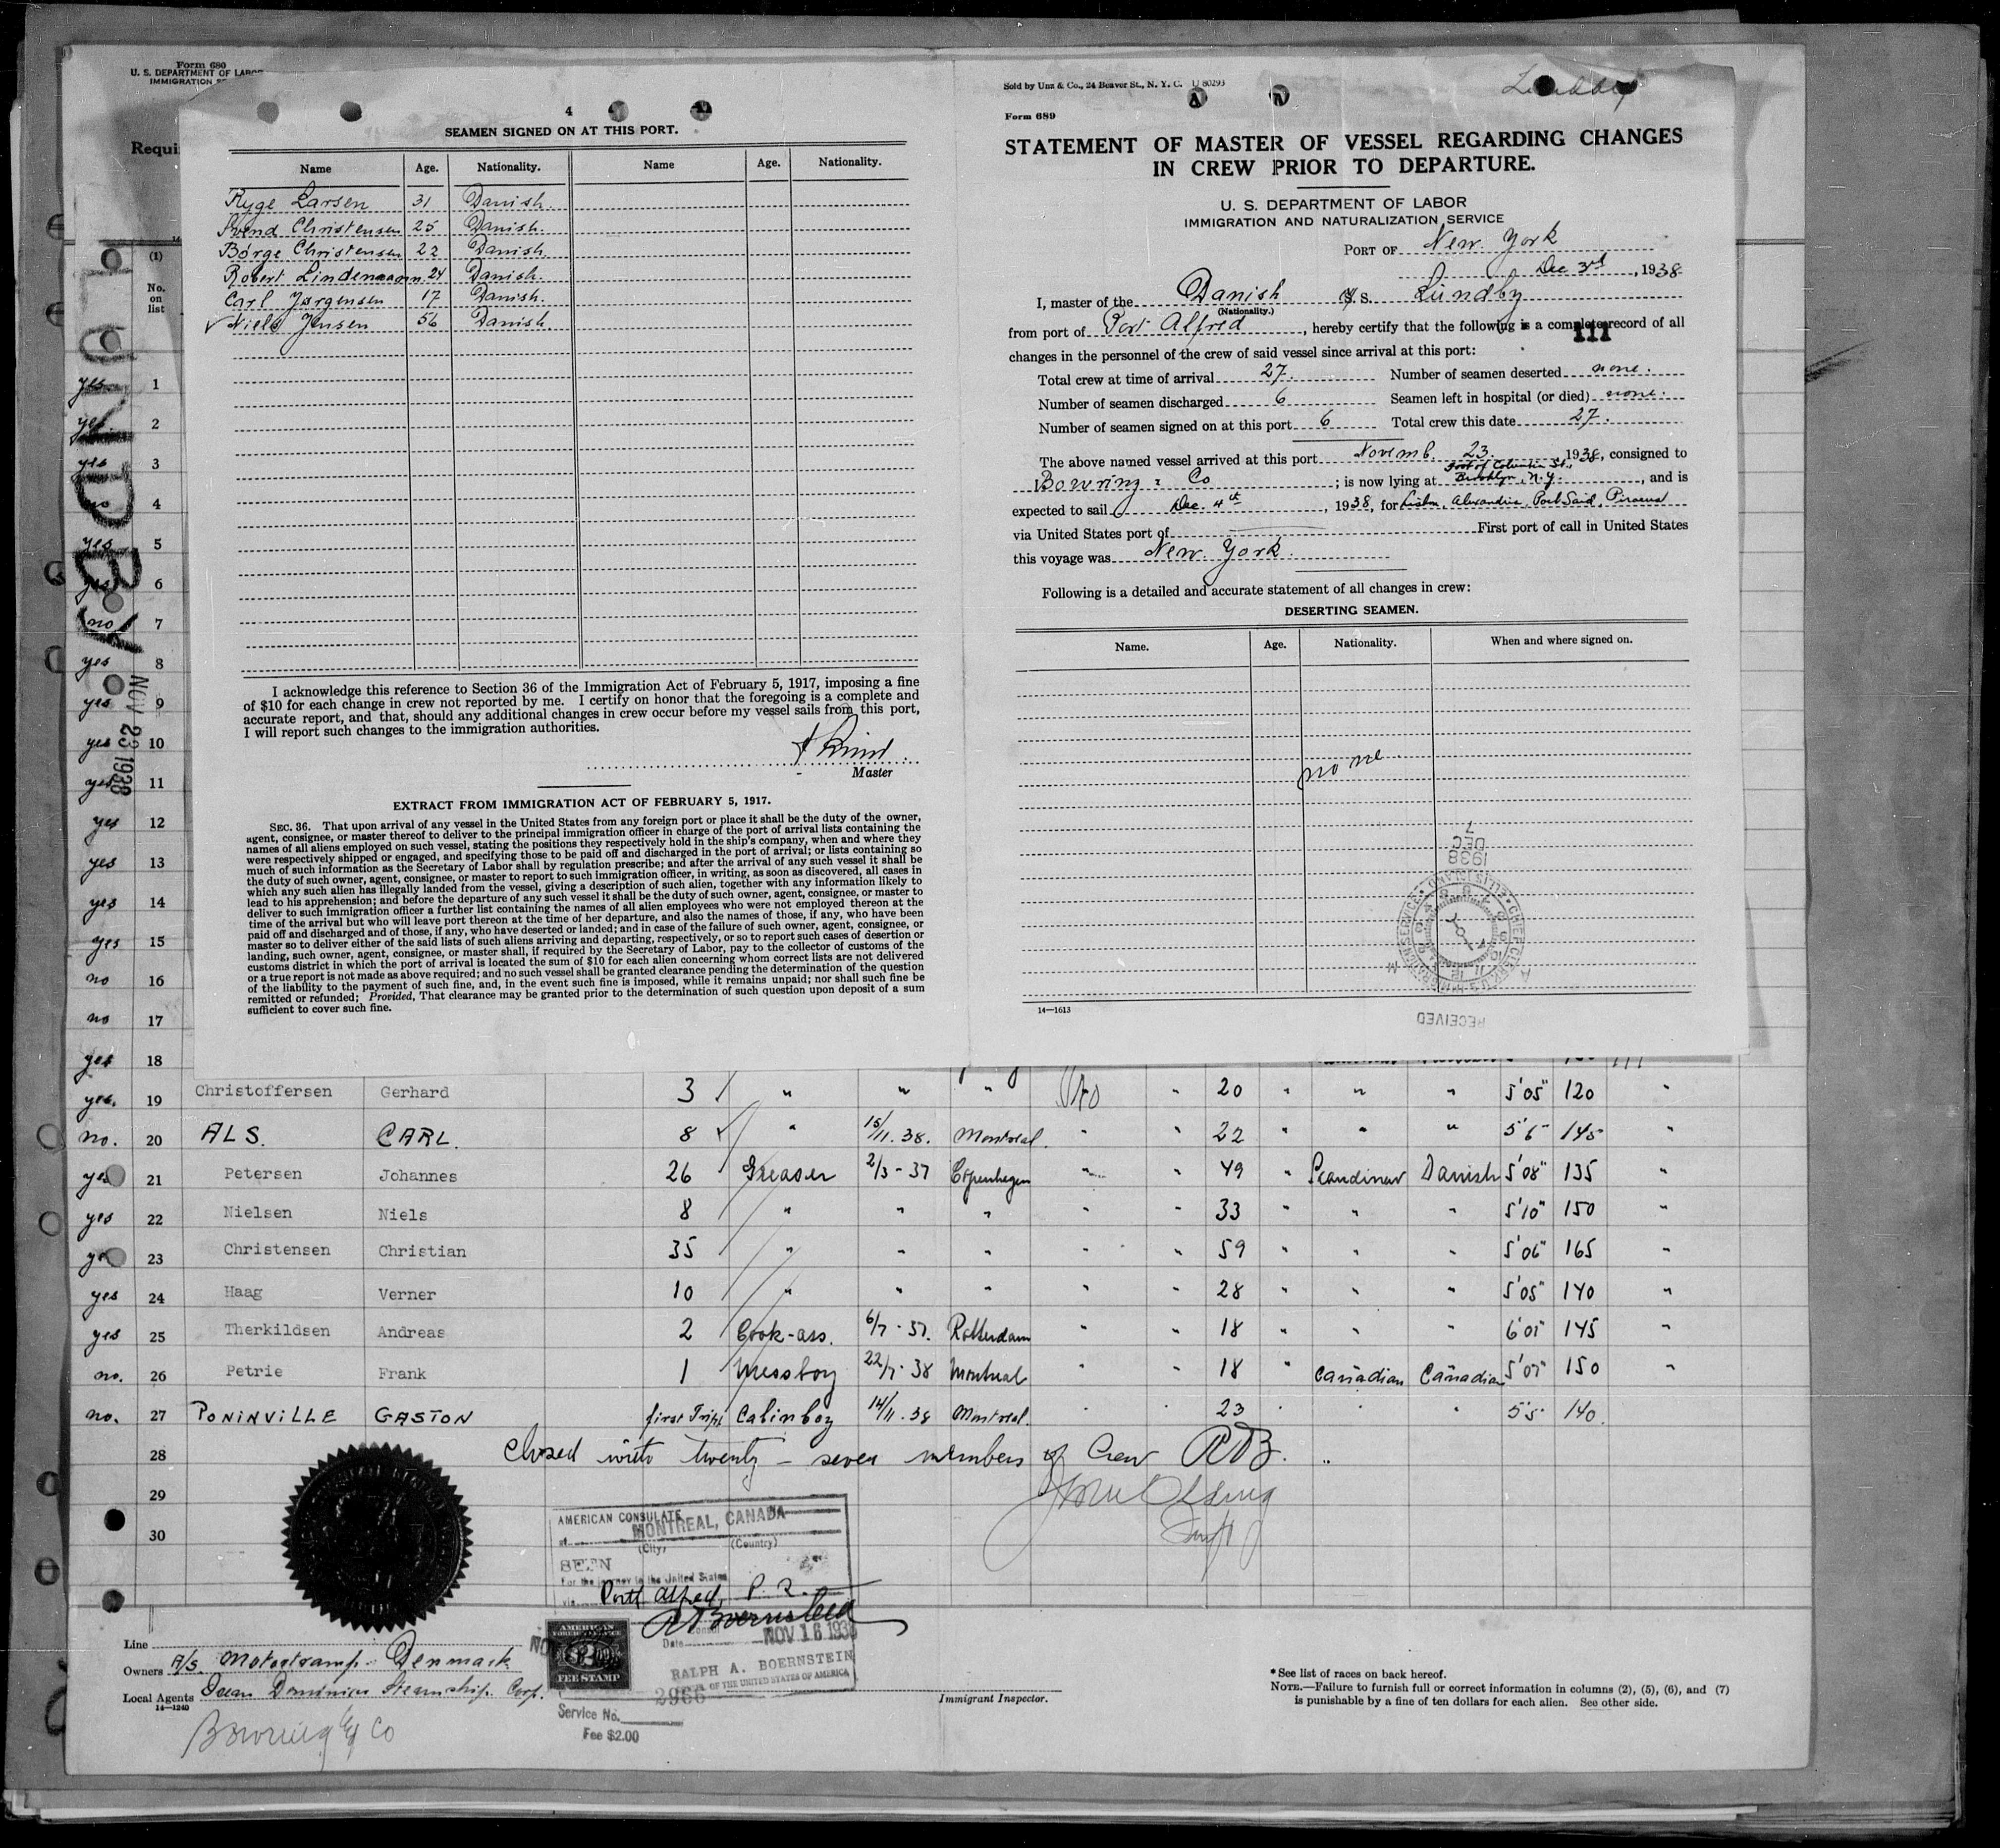 Form 680
U. S. DEPARTMENT OF LABOR
IMMIGRATION
Requi
4
SEAMEN SIGNED ON AT THIS PORT.
Name Age. Nationality. Name Age. Nationality.
Ryge Larsen 31 Danish.
Svend Christensen 25 Danish.
Börge Christensen 22 Danish.
Robert Lindemann 24 Danish.
Carl Jørgensen 17 Danish.
√ Niels Jensen 56 Danish.
I acknowledge this reference to Section 36 of the Immigration Act of February 5, 1917, imposing a fine
of $10 for each change in crew not reported by me. I certify on honor that the foregoing is a complete and
accurate report, and that, should any additional changes in crew occur before my vessel sails from this port,
I will report such changes to the immigration authorities.
Master
EXTRACT FROM IMMIGRATION ACT OF FEBRUARY 5, 1917.
SEC. 36. That upon arrival of any vessel in the United States from any foreign port or place it shall be the duty of the owner,
agent, consignee, or master thereof to deliver to the principal immigration officer in charge of the port of arrival lists containing the
names of all aliens employed on such vessel, stating the positions they respectively hold in the ship's company, when and where they
were respectively shipped or engaged, and specifying those to be paid off and discharged in the port of arrival; or lists containing so
much of such information as the Secretary of Labor shall by regulation prescribe; and after the arrival of any such vessel it shall be
the duty of such owner, agent, consignee, or master to report to such immigration officer, in writing, as soon as discovered, all cases in
which any such alien has illegally landed from the vessel, giving a description of such alien, together with any information likely to
lead to his apprehension; and before the departure of any such vessel it shall be the duty of such owner, agent, consignee, or master to
deliver to such immigration officer a further list containing the names of all alien employees who were not employed thereon at the
time of the arrival but who will leave port thereon at the time of her departure, and also the names of those, if any, who have been
paid off and discharged and of those, if any, who have deserted or landed; and in case of the failure of such owner, agent, consignee, or
master so to deliver either of the said lists of such aliens arriving and departing, respectively, or so to report such cases of desertion or
landing, such owner, agent, consignee, or master shall, if required by the Secretary of Labor, pay to the collector of customs of the
customs district in which the port of arrival is located the sum of $10 for each alien concerning whom correct lists are not delivered
or a true report is not made as above required; and no such vessel shall be granted clearance pending the determination of the question
of the liability to the payment of such fine, and, in the event such fine is imposed, while it remains unpaid; nor shall such fine be
remitted or refunded; Provided, That clearance may be granted prior to the determination of such question upon deposit of a sum
sufficient to cover such fine.
Sold by Unz & Co., 24 Beaver St., N. Y. C. U 80293
Form 689
STATEMENT OF MASTER OF VESSEL REGARDING CHANGES
IN CREW PRIOR TO DEPARTURE.
U. S. DEPARTMENT OF LABOR
IMMIGRATION AND NATURALIZATION SERVICE
PORT OF New York
Dec 3rd, 1938
I, master of the Danish S. Lundby
(Nationality.)
from port of Port Alfred, hereby certify that the following is a complete record of all
111
changes in the personnel of the crew of said vessel since arrival at this port:
Total crew at time of arrival 27. Number of seamen deserted none.
Number of seamen discharged 6 Seamen left in hospital (or died) none.
Number of seamen signed on at this port 6 Total crew this date 27.
The above named vessel arrived at this port Novemb. 23. 1938, consigned to
Foot of Columbia St.,
Bowring & Co; is now lying at Brooklyn, N.Y., and is
expected to sail Dec. 4th, 1938, for Lisbon, Alexandria, Port Said, Piraeus
via United States port of First port of call in United States
this voyage was New York.
Following is a detailed and accurate statement of all changes in crew:
DESERTING SEAMEN.
Name. Age. Nationality. When and where signed on.
none
DEC 7
1938
RECEIVED
14—1613
(1)
No. on list
yes 1
yes 2
yes 3
no 4
yes 5
yes 6
no 7
yes 8
yes 9
yes 10
yes 11
yes 12
yes 13
yes 14
yes 15
no 16
no 17
yes 18
NOV 23 1938
yes. 19 Christoffersen Gerhard 3 " " " no " 20 " " " 5'05" 120 "
no. 20 ALS. CARL. 8 " 15/11.38. Montreal. " " 22 " " " 5'6" 145 "
yes 21 Petersen Johannes 26 Greaser 2/3-37 Copenhagen " " 49 " Scandinav Danish 5'08" 135 "
yes 22 Nielsen Niels 8 " " " " " 33 " " " 5'10" 150 "
yes 23 Christensen Christian 35 " " " " " 59 " " " 5'06" 165 "
yes 24 Haag Verner 10 " " " " " 28 " " " 5'05" 140 "
yes 25 Therkildsen Andreas 2 Cook-ass. 6/7-37. Rotterdam " " 18 " " " 6'01" 145 "
no. 26 Petrie Frank 1 Messboy 22/7-38 Montreal " " 18 " Canadian Canadian 5'07" 150 "
no. 27 PONINVILLE GASTON first Trip Cabinboy 14/11.38 Montreal. " " 23 " " " 5'5" 140.
28 Closed with twenty-seven members of Crew RAB.
29
30
AMERICAN CONSULATE
at MONTREAL, CANADA
(City) (Country)
SEEN
For the journey to the United States
via Port Alfred, P. Q.
Date NOV 16 1938
RALPH A. BOERNSTEIN
OF THE UNITED STATES OF AMERICA
AMERICAN
FEE STAMP
2966
Service No.
Fee $2.00
Line
Owners A/S. Motortramp. Denmark
Local Agents Ocean Dominion Steamship. Corp.
14—1240
Bowring & Co
Immigrant Inspector.
* See list of races on back hereof.
NOTE.—Failure to furnish full or correct information in columns (2), (5), (6), and (7)
is punishable by a fine of ten dollars for each alien. See other side.